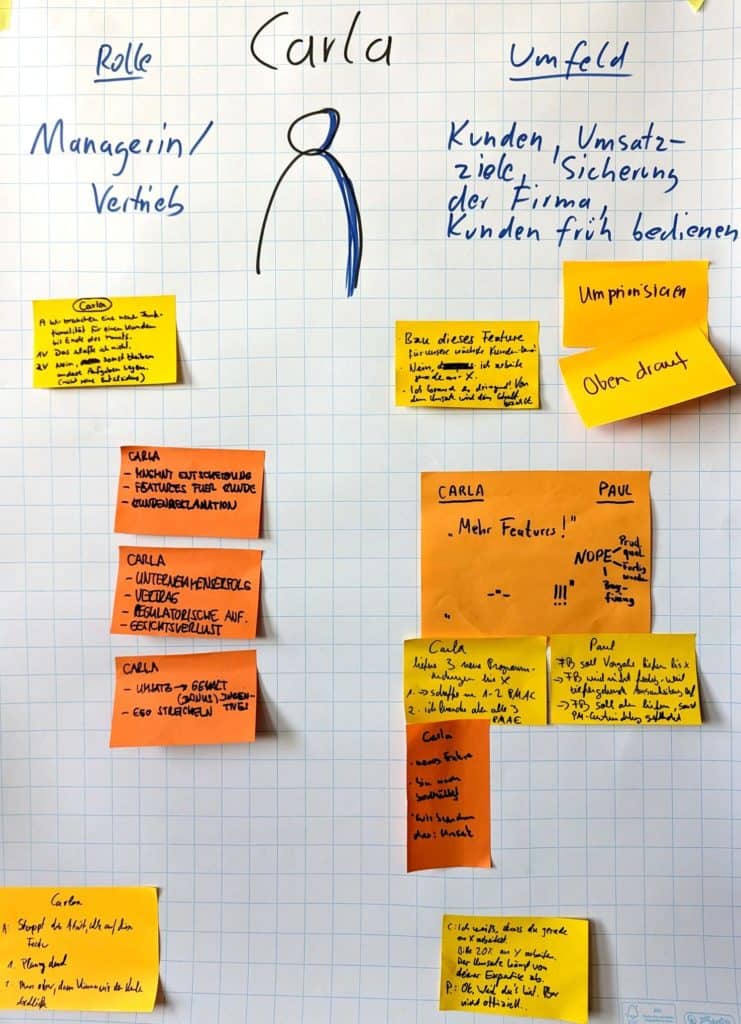 Carla
Rolle
Managerin/
Vertrieb
Umfeld
Kunden, Umsatz-
ziele, Sicherung
der Firma,
Kunden früh bedienen
Carla
A wir brauchen eine neue Funk-
tionalität für einen Kunden
bis Ende des Monats.
1V Das schaffe ich nicht.
2V Nein, sonst bleiben
andere Aufgaben liegen.
Bau dieses Feature
für unsere
Nein, ich arbeite
gerade an X.
Ich brauch es dringend. Von
dem Umsatz wird dein Gehalt
bezahlt
Umpriorisieren
Oben drauf
CARLA
- MNGMNT ENTSCHEIDUNG
- FEATURES FUER KUNDE
- KUNDENREKLAMATION
CARLA
- UNTERNEHMENSERFOLG
- VERTRAG
- REGULATORISCHE AUF.
- GESICHTSVERLUST
CARLA
- UMSATZ → GEHALT
(BONUS)
- EGO STREICHELN
CARLA PAUL
„Mehr Features!"
NOPE
Prod
qual
Fertig
werden
Bug-
fixing
„ -"- !!!"
Carla
liefere 3 neue Programm-
bis x
1. → schaffe nur 1-2
2. ich brauche aber alle 3
Paul
FB soll Vorgabe liefern bis x
→ FB wird nicht fertig, weil
→ FB soll aber liefern, sonst
Carla
neues Feature
Umsatz
Carla
A: Stoppt die Arbeit, alle auf dein
1. Planung
C: Ich weiß, dass du gerade
an X arbeitest.
Bitte 20% an Y arbeiten.
Der Umsatz hängt von
deiner Expertise ab.
P.: Ok. Weil du's bist. Aber
nicht offiziell.